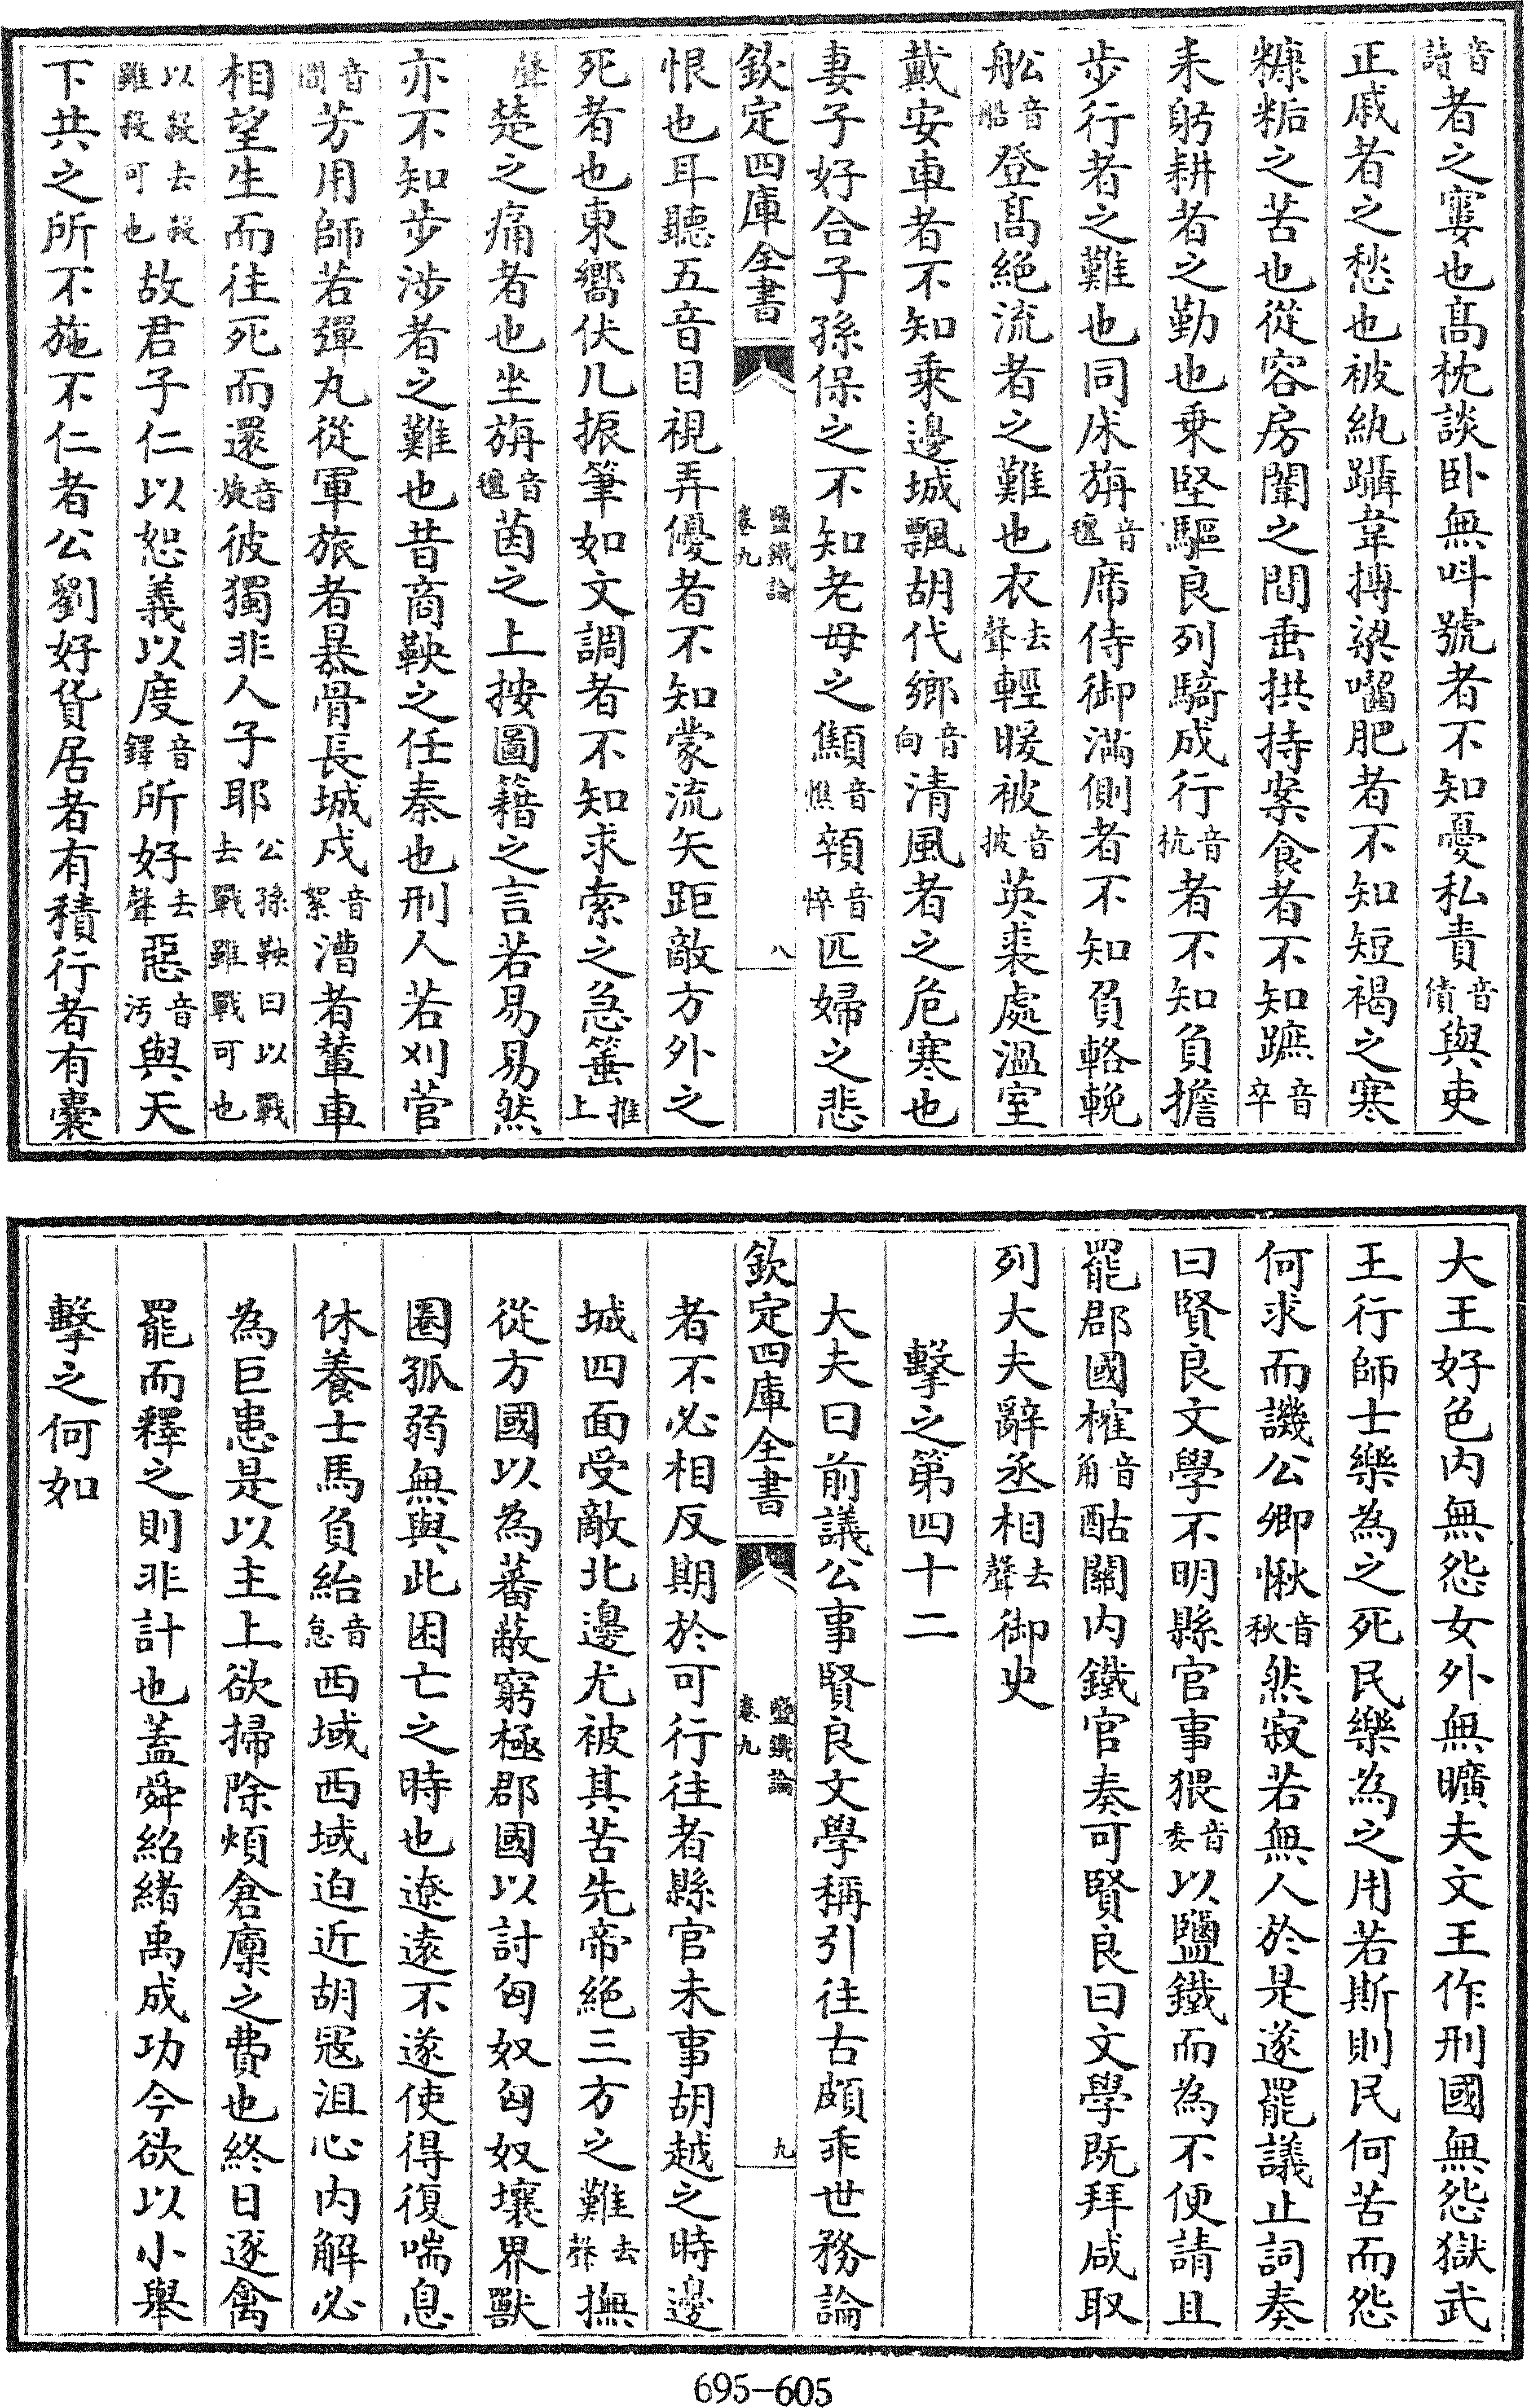 音讀者之窶也髙枕談卧無呌號者不知憂私責音債與吏
正戚者之愁也被紈躡韋搏粱囓肥者不知短褐之寒
糠粃之苦也從容房闈之間垂拱持案食者不知蹠音卒
耒躬耕者之勤也乗堅驅良列騎成行音杭者不知負擔
步行者之難也同床旃音氊席侍御滿側者不知負輅輓
舩音船登髙絶流者之難也衣去聲輕暖被音披英裘處温室
戴安車者不知乗邊城飄胡代鄉音向清風者之危寒也
妻子好合子孫保之不知老母之顦音憔顇音悴匹婦之悲
欽定四庫全書
鹽鐵論
卷九
八
恨也耳聽五音目視弄優者不知蒙流矢距敵方外之
死者也東嚮伏几振筆如文調者不知求索之急箠推上
聲楚之痛者也坐旃音氊茵之上按圖籍之言若易易然
亦不知步涉者之難也昔商鞅之任秦也刑人若刈菅
音間茅用師若彈丸從軍旅者暴骨長城戍音絮漕者輦車
相望生而往死而還音旋彼獨非人子耶公孫鞅曰以戰去戰雖戰可也
以殺去殺雖殺可也故君子仁以恕義以度音鐸所好去聲惡音汚與天
下共之所不施不仁者公劉好貨居者有積行者有囊
大王好色内無怨女外無曠夫文王作刑國無怨獄武
王行師士樂為之死民樂為之用若斯則民何苦而怨
何求而譏公卿愀音秋然寂若無人於是遂罷議止詞奏
曰賢良文學不明縣官事猥音委以鹽鐵而為不便請且
罷郡國榷音角酤關内鐵官奏可賢良曰文學既拜咸取
列大夫辭丞相去聲御史
擊之第四十二
大夫曰前議公事賢良文學稱引往古頗乖世務論
欽定四庫全書
鹽鐵論
卷九
九
者不必相反期於可行往者縣官未事胡越之時邊
城四面受敵北邊尤被其苦先帝絶三方之難去聲撫
從方國以為蕃蔽窮極郡國以討匈奴匈奴壤界獸
圏孤弱無與此困亡之時也遼逺不遂使得復喘息
休養士馬負紿音怠西域西域迫近胡冦沮心内解必
為巨患是以主上欲掃除煩倉廩之費也終日逐禽
罷而釋之則非計也葢舜紹緒禹成功今欲以小舉
擊之何如
695-605